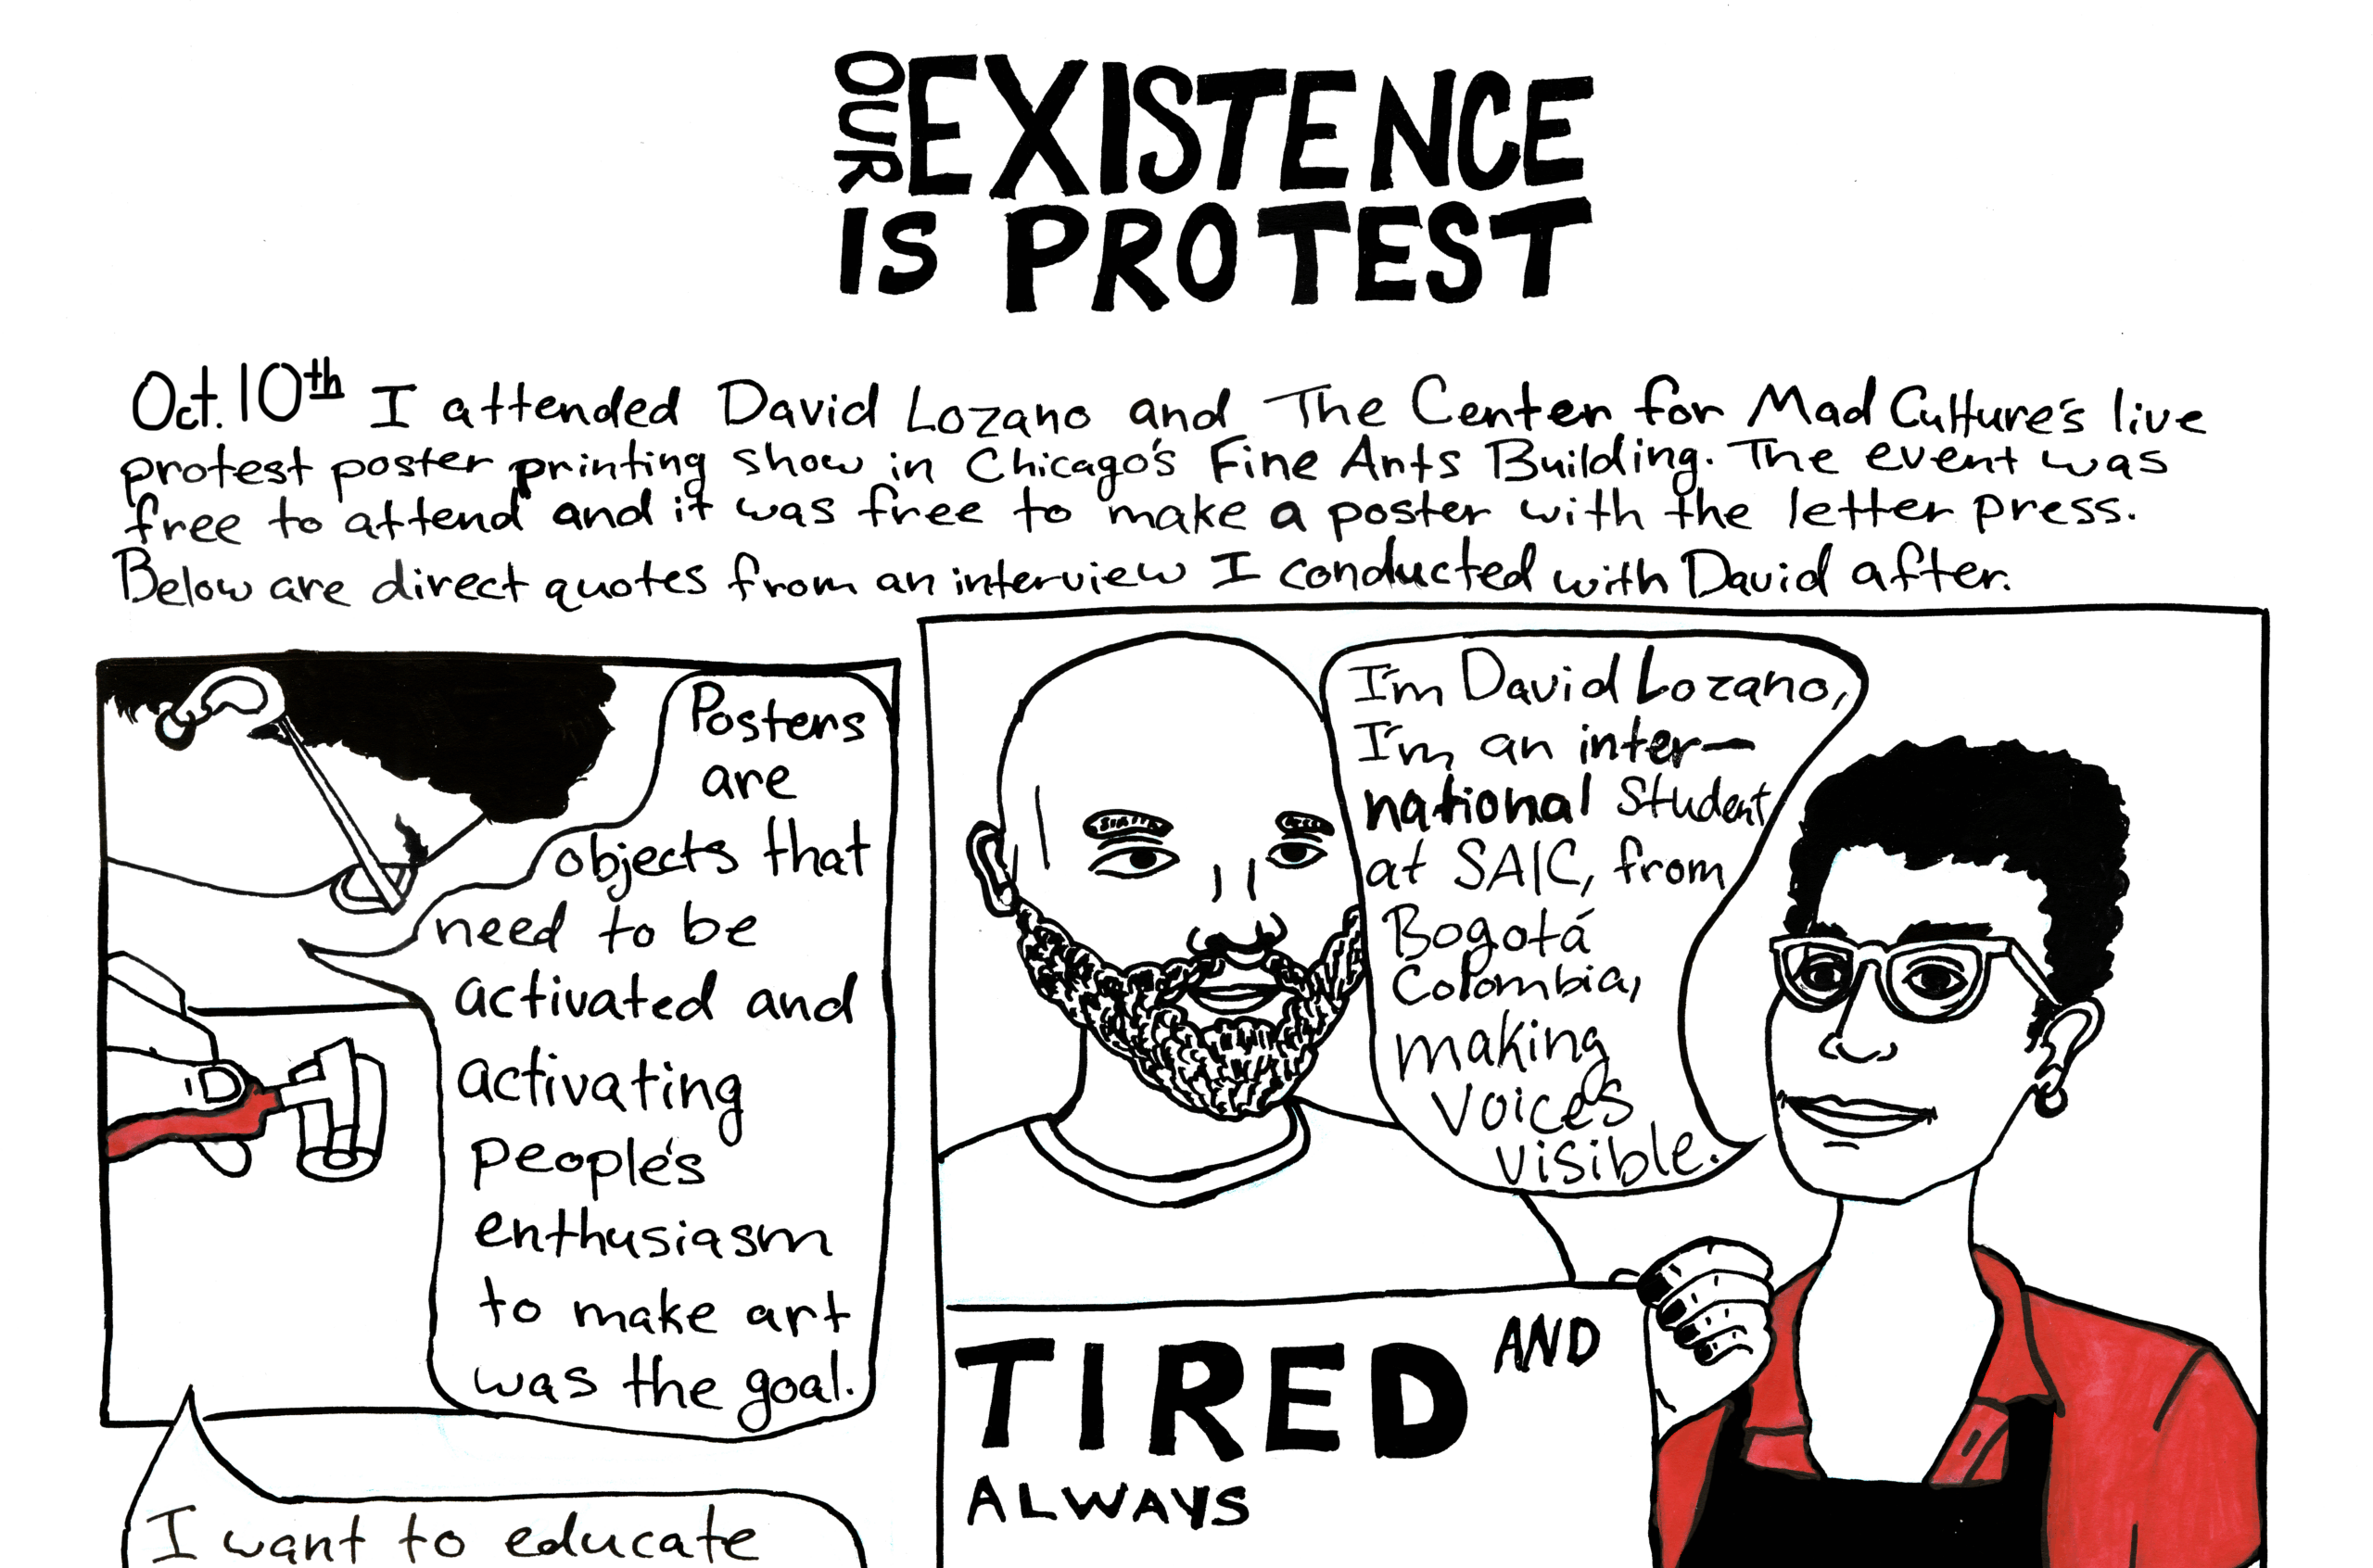 OUR EXISTENCE
IS PROTEST
Oct. 10th I attended David Lozano and The Center for Mad Culture's live
protest poster printing show in Chicago's Fine Arts Building. The event was
free to attend and it was free to make a poster with the letter press.
Below are direct quotes from an interview I conducted with David after.
Posters
are
objects that
need to be
activated and
activating
people's
enthusiasm
to make art
was the goal.
I want to educate
I'm David Lozano,
I'm an inter-
national Student
at SAIC, from
Bogotá
Colombia,
making
voices
visible.
TIRED AND
ALWAYS